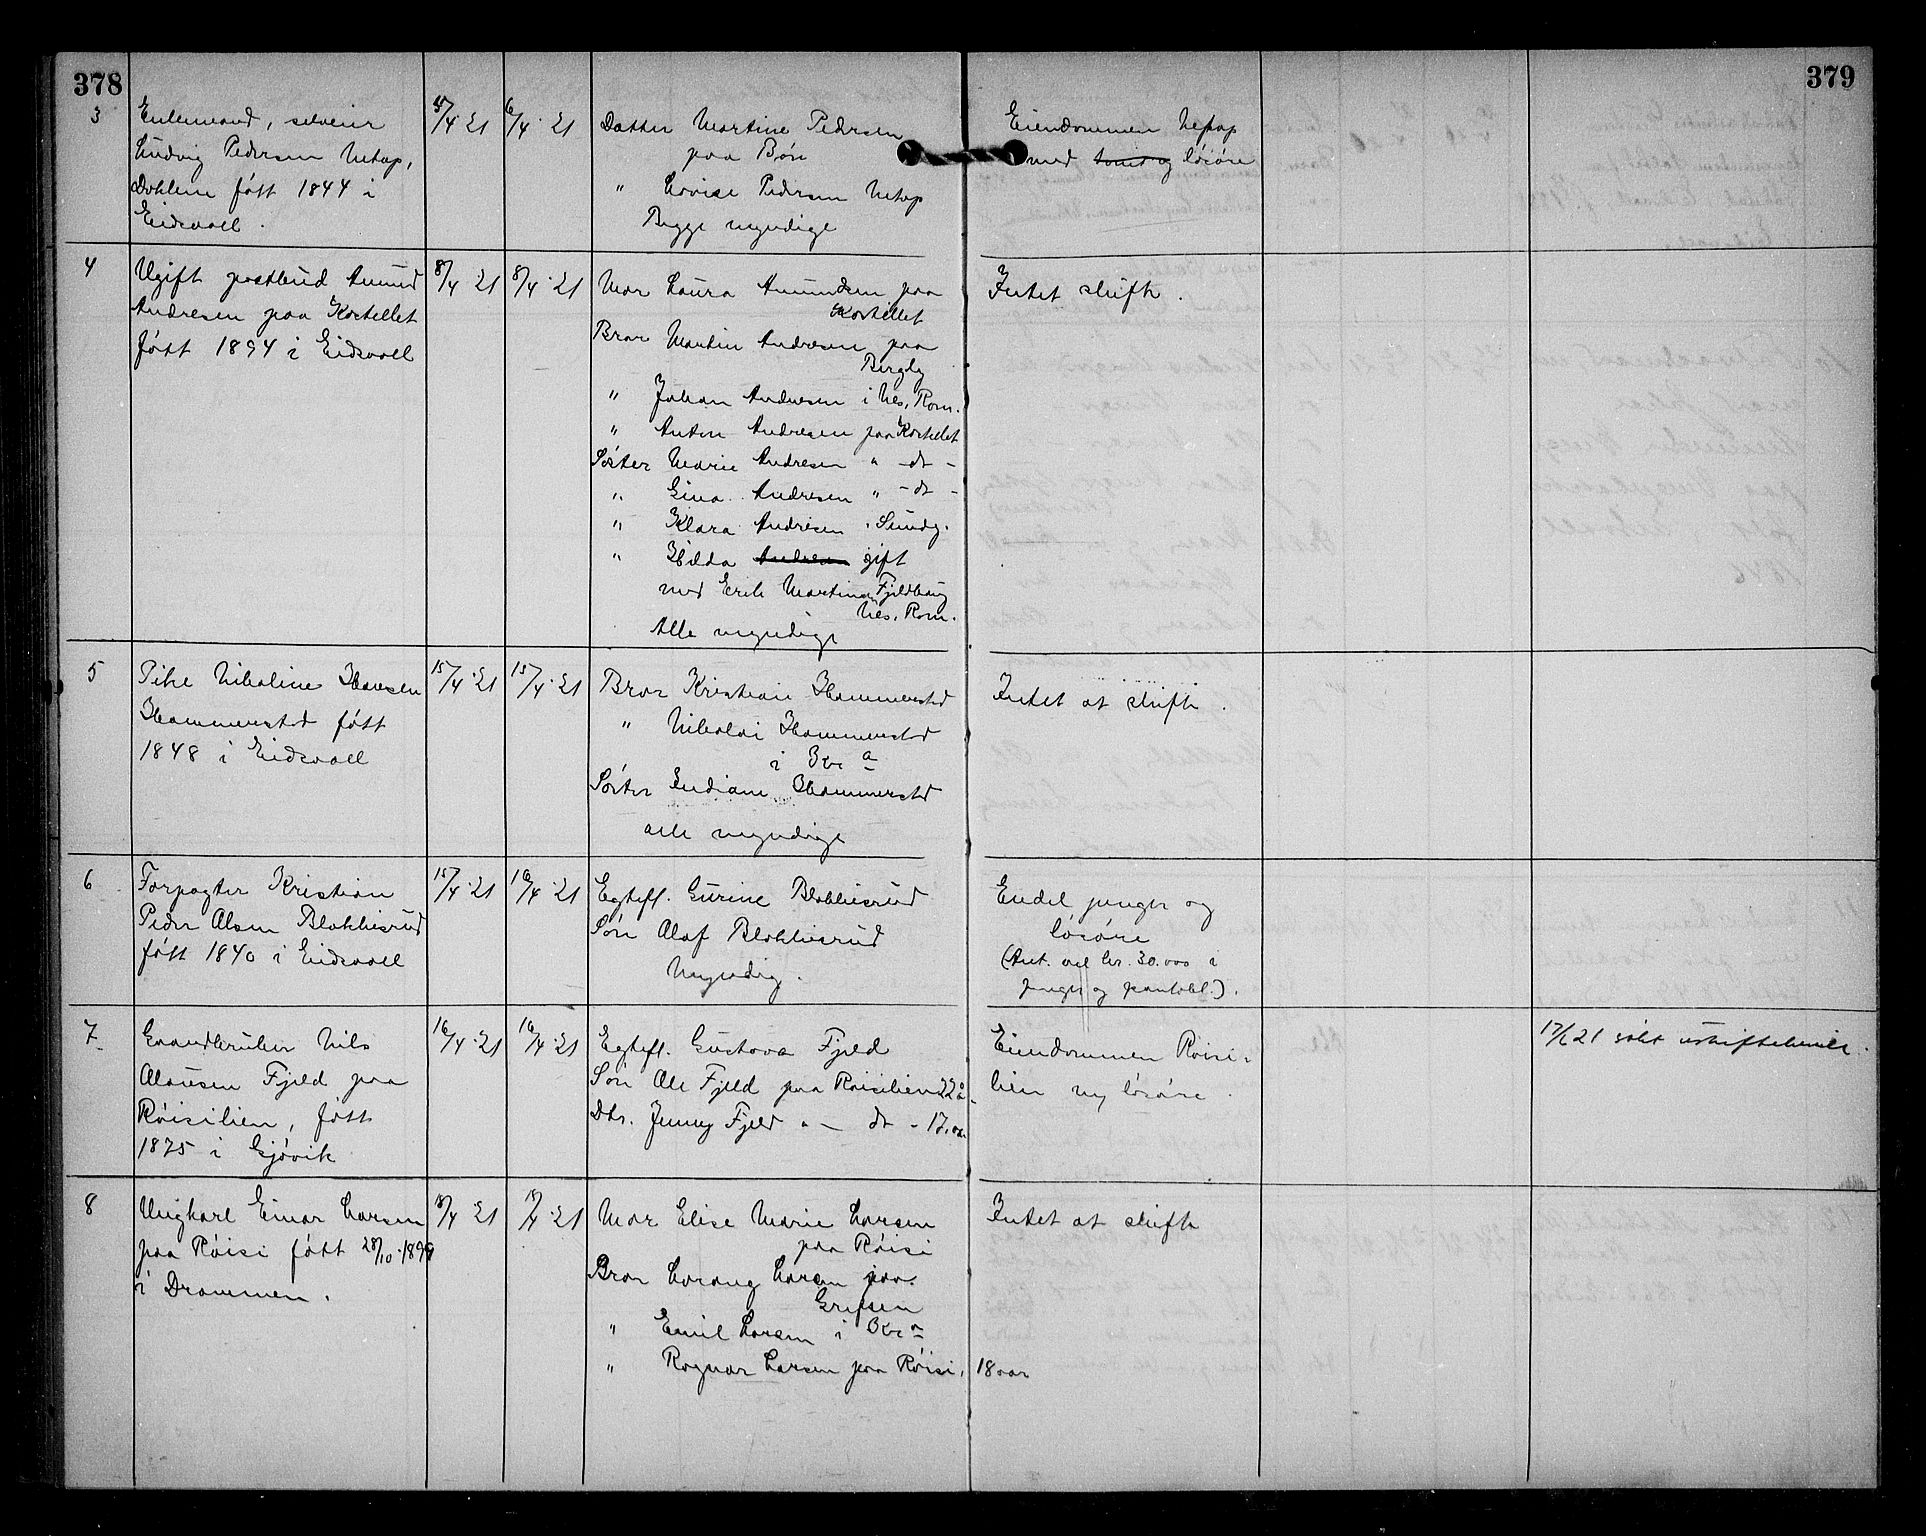 378
379
3
Enkemand, selveier
Ludvig Pedersen
født 1844 i
Eidsvoll.
5/4-21
6/4-21
Datter Martine Pedersen
paa Bøn
" Lovise Pedersen
Begge myndige
Eiendommen
med løsøre
4
Ugift postbud Amund
Andresen paa Kastellet
født 1894 i Eidsvoll
8/4-21
8/4-21
Mor Laura Amundsen paa
Kastellet
Bror Martin Andresen paa
Bergly
" Johan Andresen i Nes, Rom.
" Anton Andresen paa Kastellet
Søster Marie Andresen " -dt-
" Gina Andresen " -dt-
" Klara Andresen
" Hilda Andresen gift
med Erik Martinsen Fjeldhaug
Nes, Rom.
Alle myndige
Intet skifte.
5
Pike Nikoline Hansen
Hammerstad født
1848 i Eidsvoll
15/4-21
15/4-21
Bror Kristian Hammerstad
" Nikolai Hammerstad
i
Søster Indiane Hammerstad
alle myndige
Intet at skifte.
6
Forpagter Kristian
Peder Olsen Blokhusrud
født 1840 i Eidsvoll
15/4-21
16/4-21
Egtefl. Gurine Blokhusrud
Søn Olaf Blokhusrud
Myndig.
Endel penger og
løsøre
(Ant. vel kr. 30.000 i
penger og pantobl.).
7
Grandbruker Nils
Olausen Fjeld paa
Røisilien, født
1875 i Gjøvik
16/4-21
16/4-21
Egtefl. Gustava Fjeld
Søn Ole Fjeld paa Røisilien 22 a
Dtr. Jenny Fjeld " - dt - 17 aar
Eiendommen Røisi-
lien og løsøre.
17/6 21 uskiftebevill.
8
Ungkarl Einar Larsen
paa Røisi født 28/10-1899
i Drammen.
/4-21
/4-21
Mor Elise Marie Larsen
paa Røisi
Bror Larsen paa
" Emil Larsen i
" Ragnar Larsen paa Røisi, 18 aar
Intet at skifte